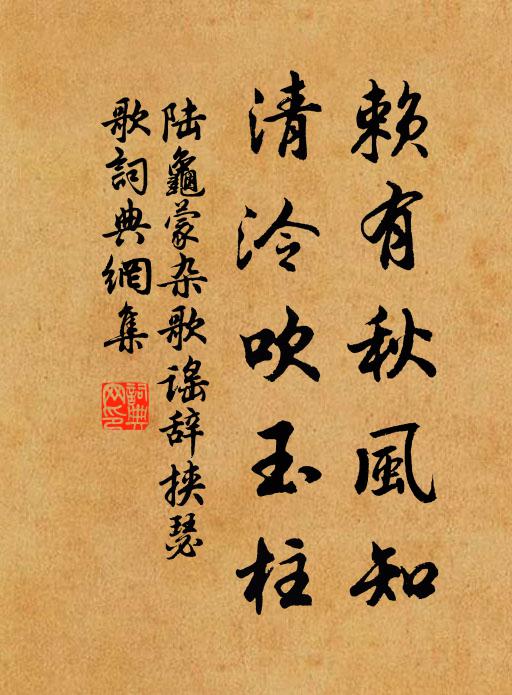 賴有秋風知
清泠吹玉柱
陆龜蒙杂歌谣辞挾瑟
歌詞典網集
詞典
网印